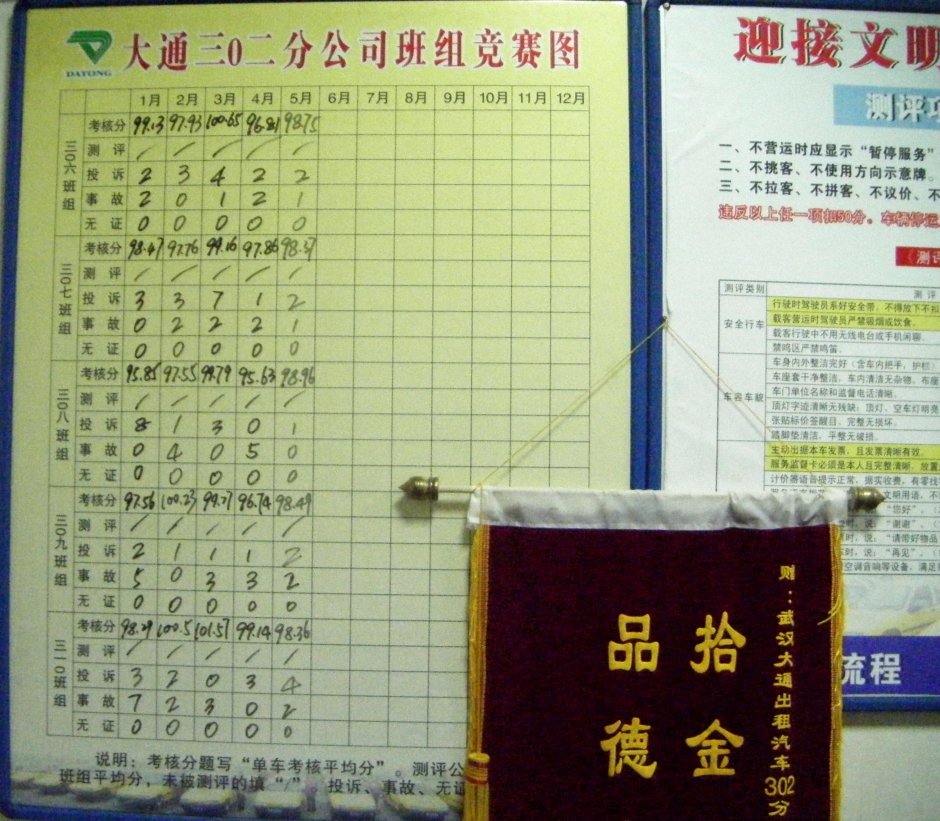 DATONG
大通三0二分公司班组竞赛图
1月 2月 3月 4月 5月 6月 7月 8月 9月 10月 11月 12月
三〇六班组
考核分 99.13 97.93 100.65 96.81 98.75
测评 / / / / /
投诉 2 3 4 2 2
事故 2 0 1 2 1
无证 0 0 0 0 0
三〇七班组
考核分 98.47 97.76 99.16 97.86 98.57
测评 / / / / /
投诉 3 3 7 1 2
事故 0 2 2 2 1
无证 0 0 0 0 0
三〇八班组
考核分 95.85 97.55 99.79 95.63 98.96
测评 / / / / /
投诉 8 1 3 0 1
事故 0 4 0 5 0
无证 0 0 0 0 0
三〇九班组
考核分 97.56 100.23 99.71 96.74 98.49
测评 / / / / /
投诉 2 1 1 1 2
事故 5 0 3 3 2
无证 0 0 0 0 0
三一〇班组
考核分 98.29 100.5 101.57 99.14 98.36
测评 / / / / /
投诉 3 2 0 3 4
事故 7 2 3 0 2
无证 0 0 0 0 0
说明：考核分题写“单车考核平均分”。测评公
班组平均分，未被测评的填“/” 投诉、事故、无证
迎接文明
测评
一、不营运时应显示“暂停服务”
二、不挑客、不使用方向示意牌。
三、不拉客、不拼客、不议价、不
违反以上任一项扣50分。车辆停运
（测评
测评类别 测评
安全行车
行驶时驾驶员系好安全带，不得放下不扣
载客营运时驾驶员严禁吸烟或饮食。
载客行驶中不用无线电台或手机闲聊
禁鸣区严禁鸣笛。
车容车貌
车身内外整洁完好（含车内把手，护栏）
车座套干净整洁，车内清洁无杂物，布座
车门单位名称和监督电话清晰。
顶灯字迹清晰无残缺；顶灯，空车灯明亮
张贴标价签醒目、完整无损坏。
踏脚垫清洁，平整无破损。
主动出据本车发票，且发票清晰有效。
服务监督卡必须是本人且完整清晰，放置
计价器语音提示正常，据实收费，有零找
文明用语，不
“您好”
时，说：“谢谢”
时，说：“请带好物品
车时，说：“再见”
空调音响等设备，满足
流程
则：武汉大通出租汽车302分
拾金
品德